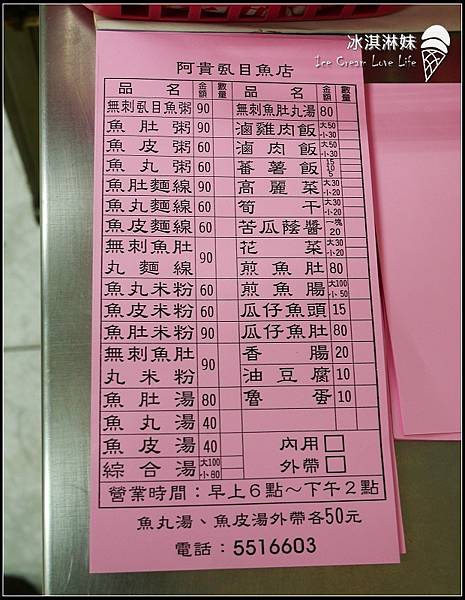 冰淇淋妹
Ice Cream Love Life
阿貴虱目魚店
品名 金額 數量 品名 金額 數量
無刺虱目魚粥 90
魚肚粥 90
魚皮粥 60
魚丸粥 60
魚肚麵線 90
魚丸麵線 60
魚皮麵線 60
無刺魚肚
丸麵線 90
魚丸米粉 60
魚皮米粉 60
魚肚米粉 90
無刺魚肚
丸米粉 90
魚肚湯 80
魚丸湯 40
魚皮湯 40
綜合湯 大100 小80
無刺魚肚丸湯 80
滷雞肉飯 大50 小30
滷肉飯 大50 小30
蕃薯飯 15 10 5
高麗菜 大30 小20
筍干 大30 小20
苦瓜蔭醬 一塊 20
花菜 大30 小20
煎魚肚 80
煎魚腸 大100 小50
瓜仔魚頭 15
瓜仔魚肚 80
香腸 20
油豆腐 10
魯蛋 10
內用□
外帶□
營業時間：早上6點～下午2點
魚丸湯、魚皮湯外帶各50元
電話：5516603